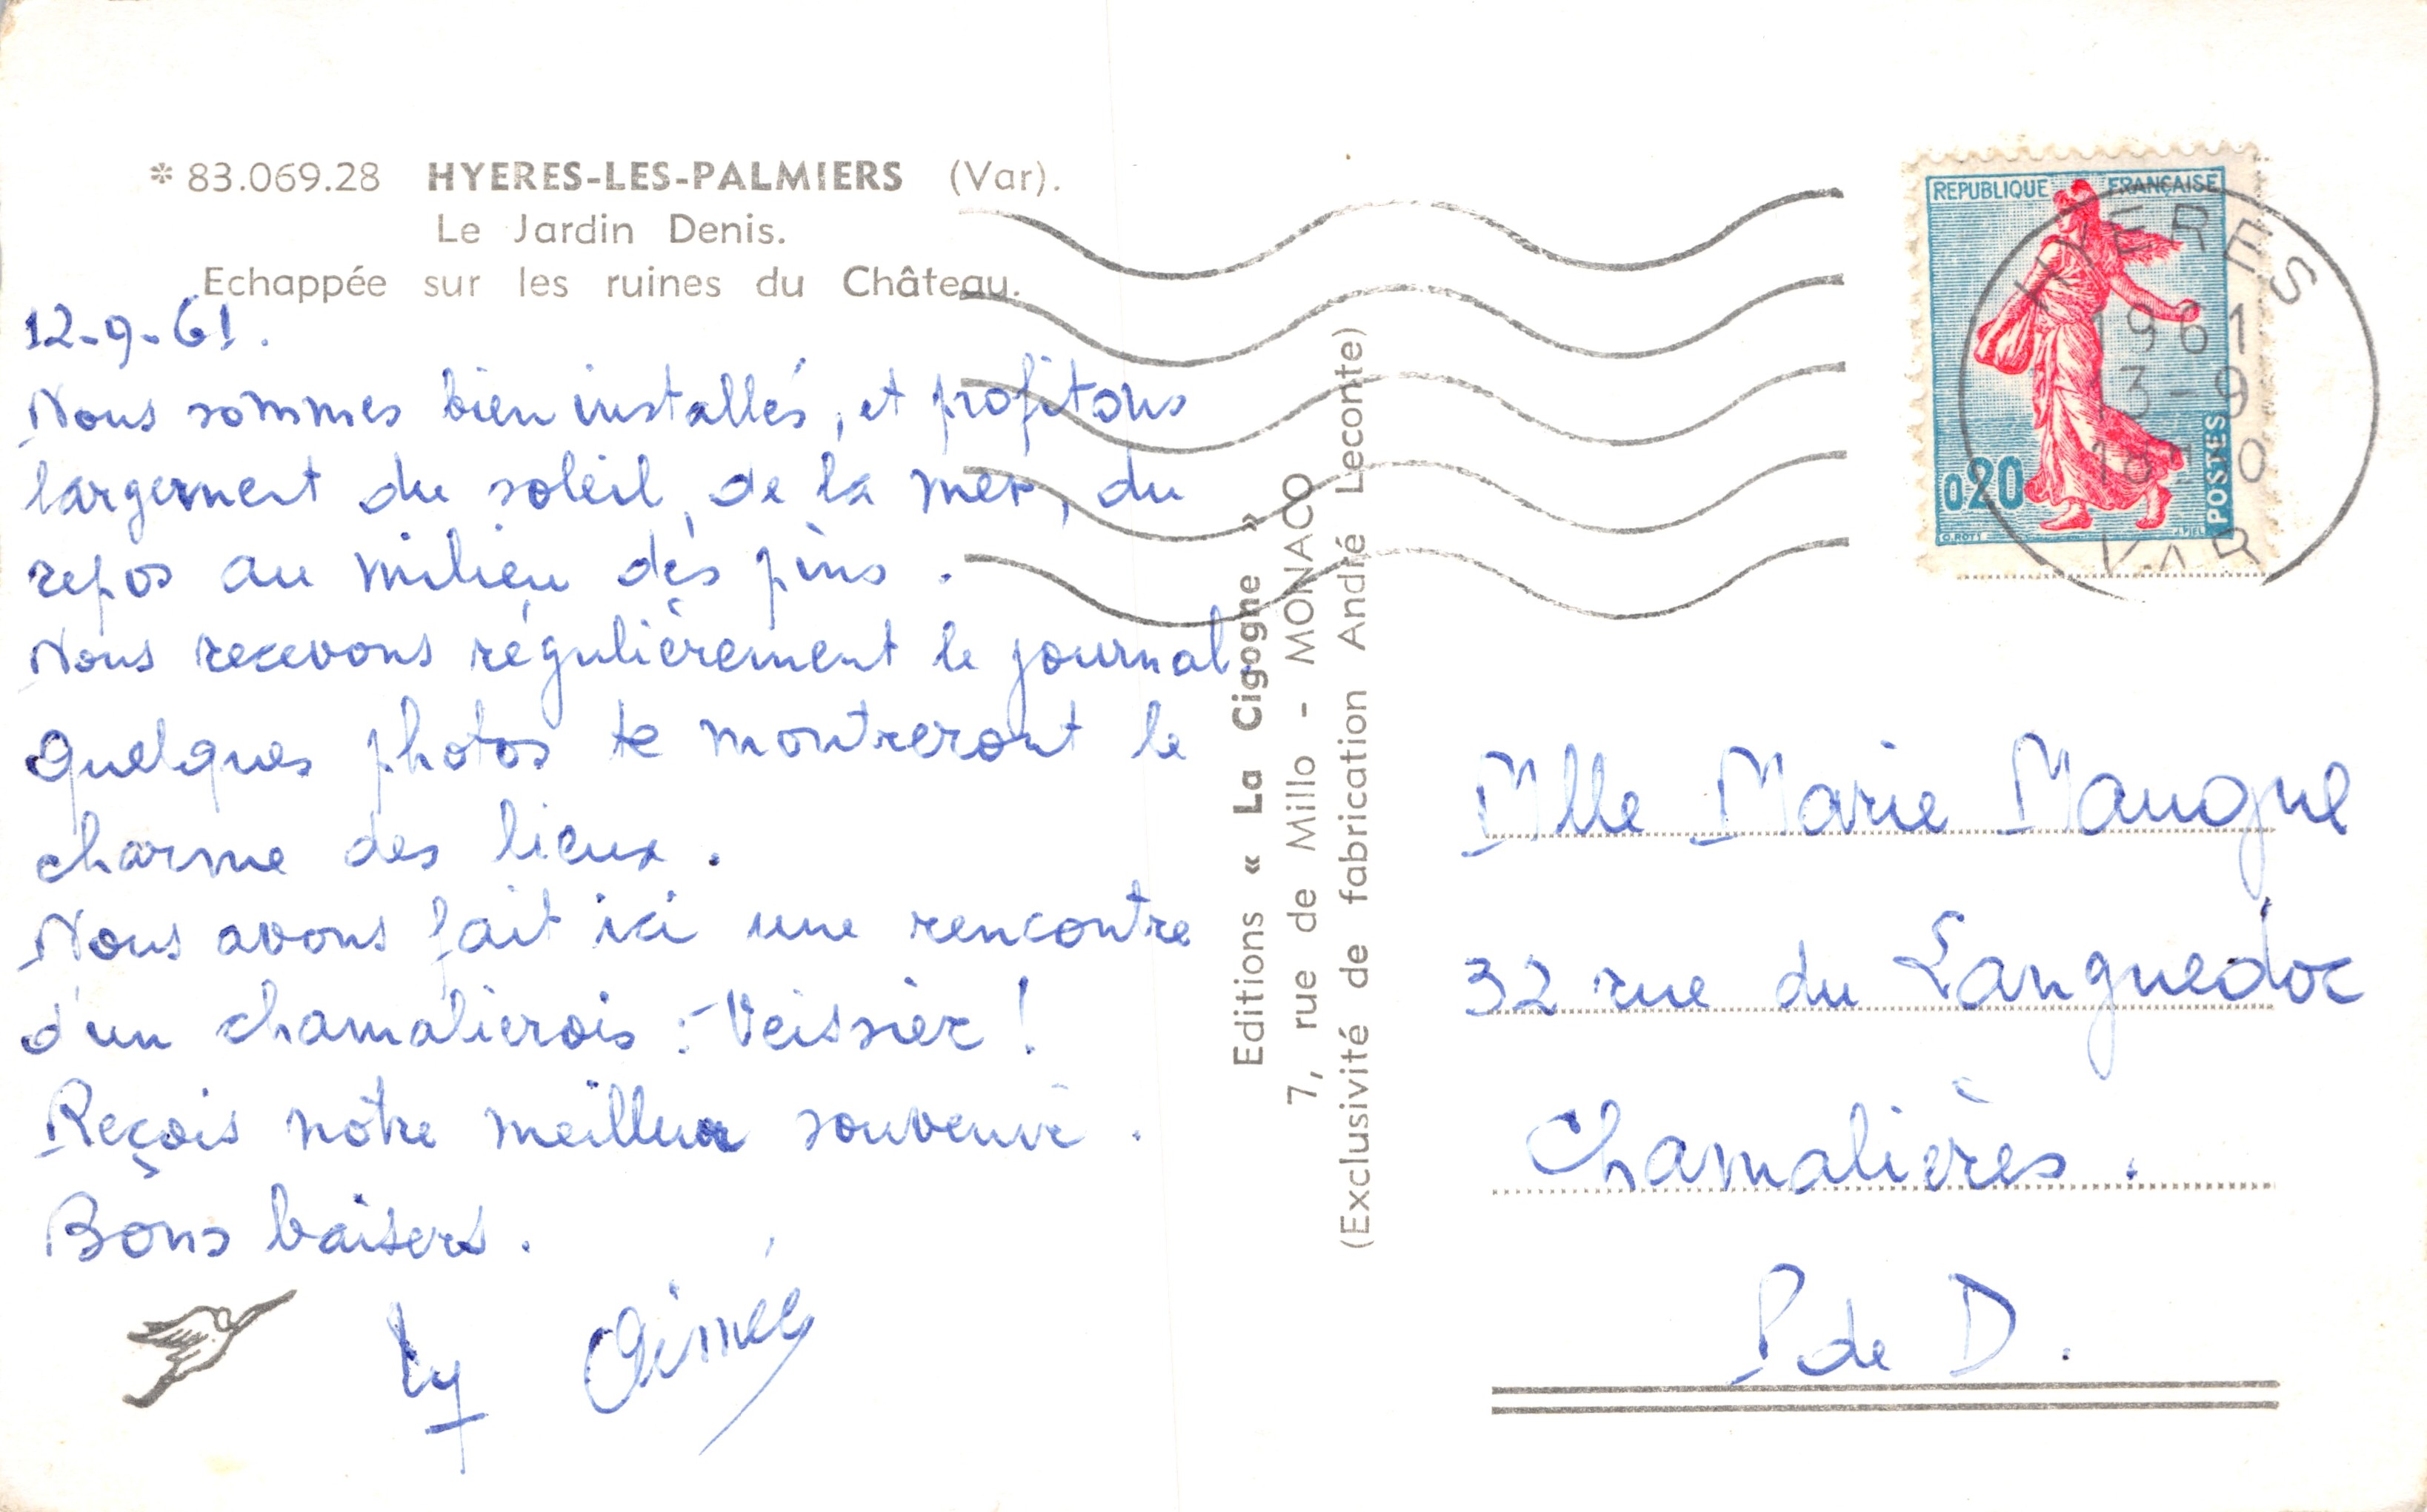 * 83.069.28 HYERES-LES-PALMIERS (Var).
Le Jardin Denis.
Echappée sur les ruines du Château.
12-9-61.
Nous sommes bien installés, et profitons
largement du soleil, de la mer, du
repos au milieu des pins.
Nous recevons régulièrement le journal.
Quelques photos te montreront le
charme des lieux.
Nous avons fait ici une rencontre
d'un chamalierois :- Veissier !
Reçois notre meilleur souvenir.
Bons baisers.
Ly Aimée
Editions « La Cigogne »
7, rue de Millo - MONACO
(Exclusivité de fabrication André Leconte)
REPUBLIQUE FRANÇAISE
0,20
POSTES
HYERES
1961
13-9
VAR
Mlle Marie Maugue
32 rue du Languedoc
Chamalières.
P de D.